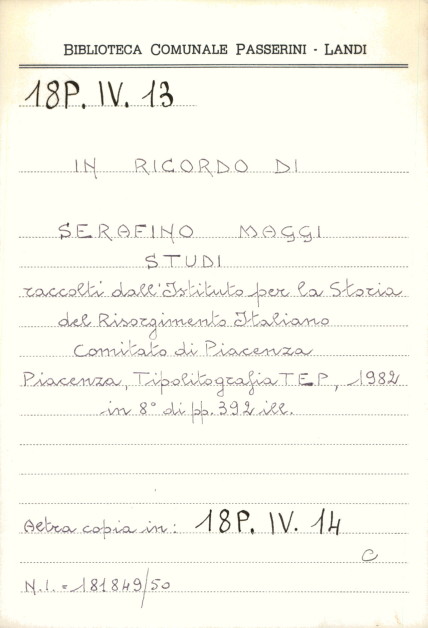 BIBLIOTECA COMUNALE PASSERINI - LANDI
18P. IV. 13
IN RICORDO DI
SERAFINO MAGGI
STUDI
raccolti dall'Istituto per la Storia
del Risorgimento Italiano
Comitato di Piacenza
Piacenza, Tipolitografia TEP, 1982
in 8° di pp. 392 ill.
Altra copia in: 18P. IV. 14
C
N.I. = 181849/50